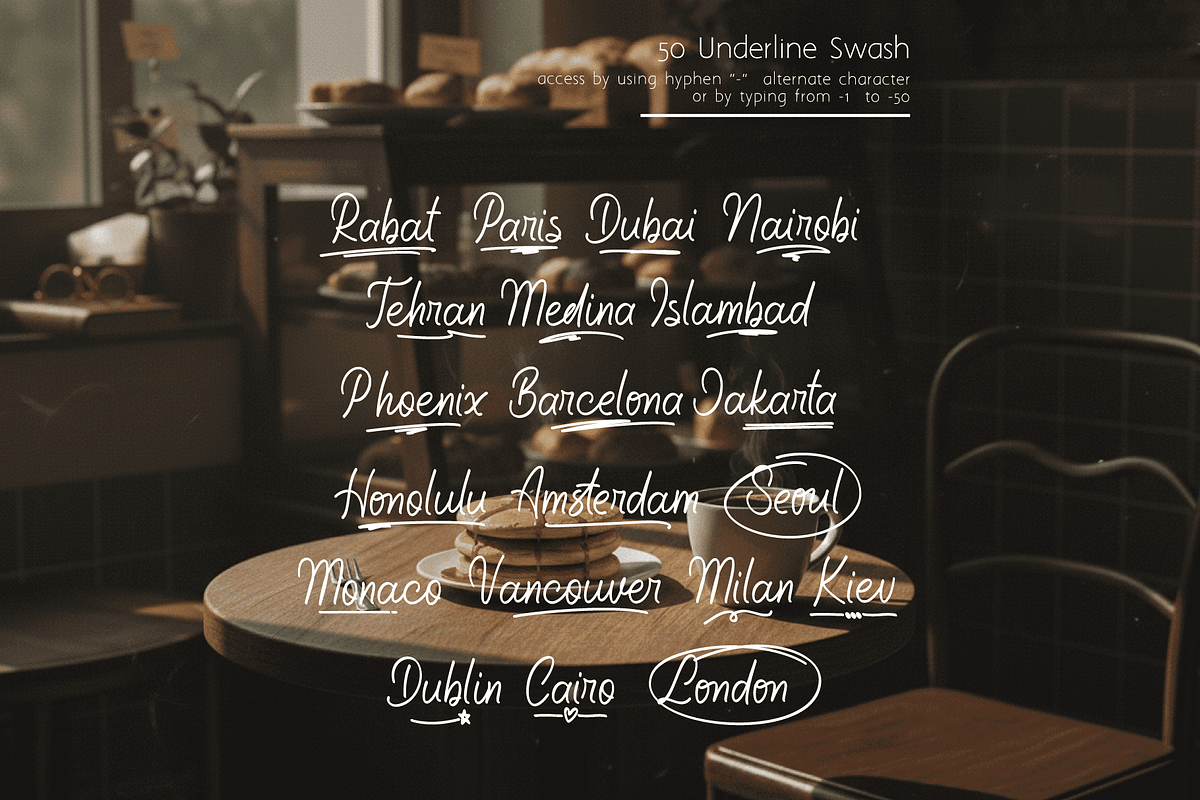 50 Underline Swash
access by using hyphen "-" alternate character
or by typing from -1 to -50
Rabat Paris Dubai Nairobi
Tehran Medina Islambad
Phoenix Barcelona Jakarta
Honolulu Amsterdam Seoul
Monaco Vancouver Milan Kiev
Dublin Cairo London